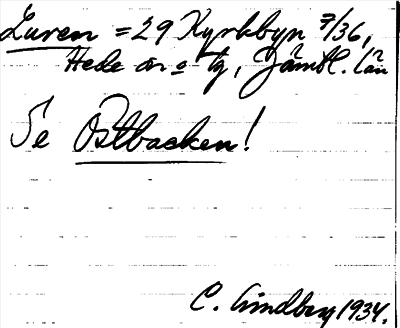 Luren = 29 Kyrkbyn 7/36,
Hede sn o tg, Jämtl. län
Se Ostbacken!
C. Lindberg 1934.